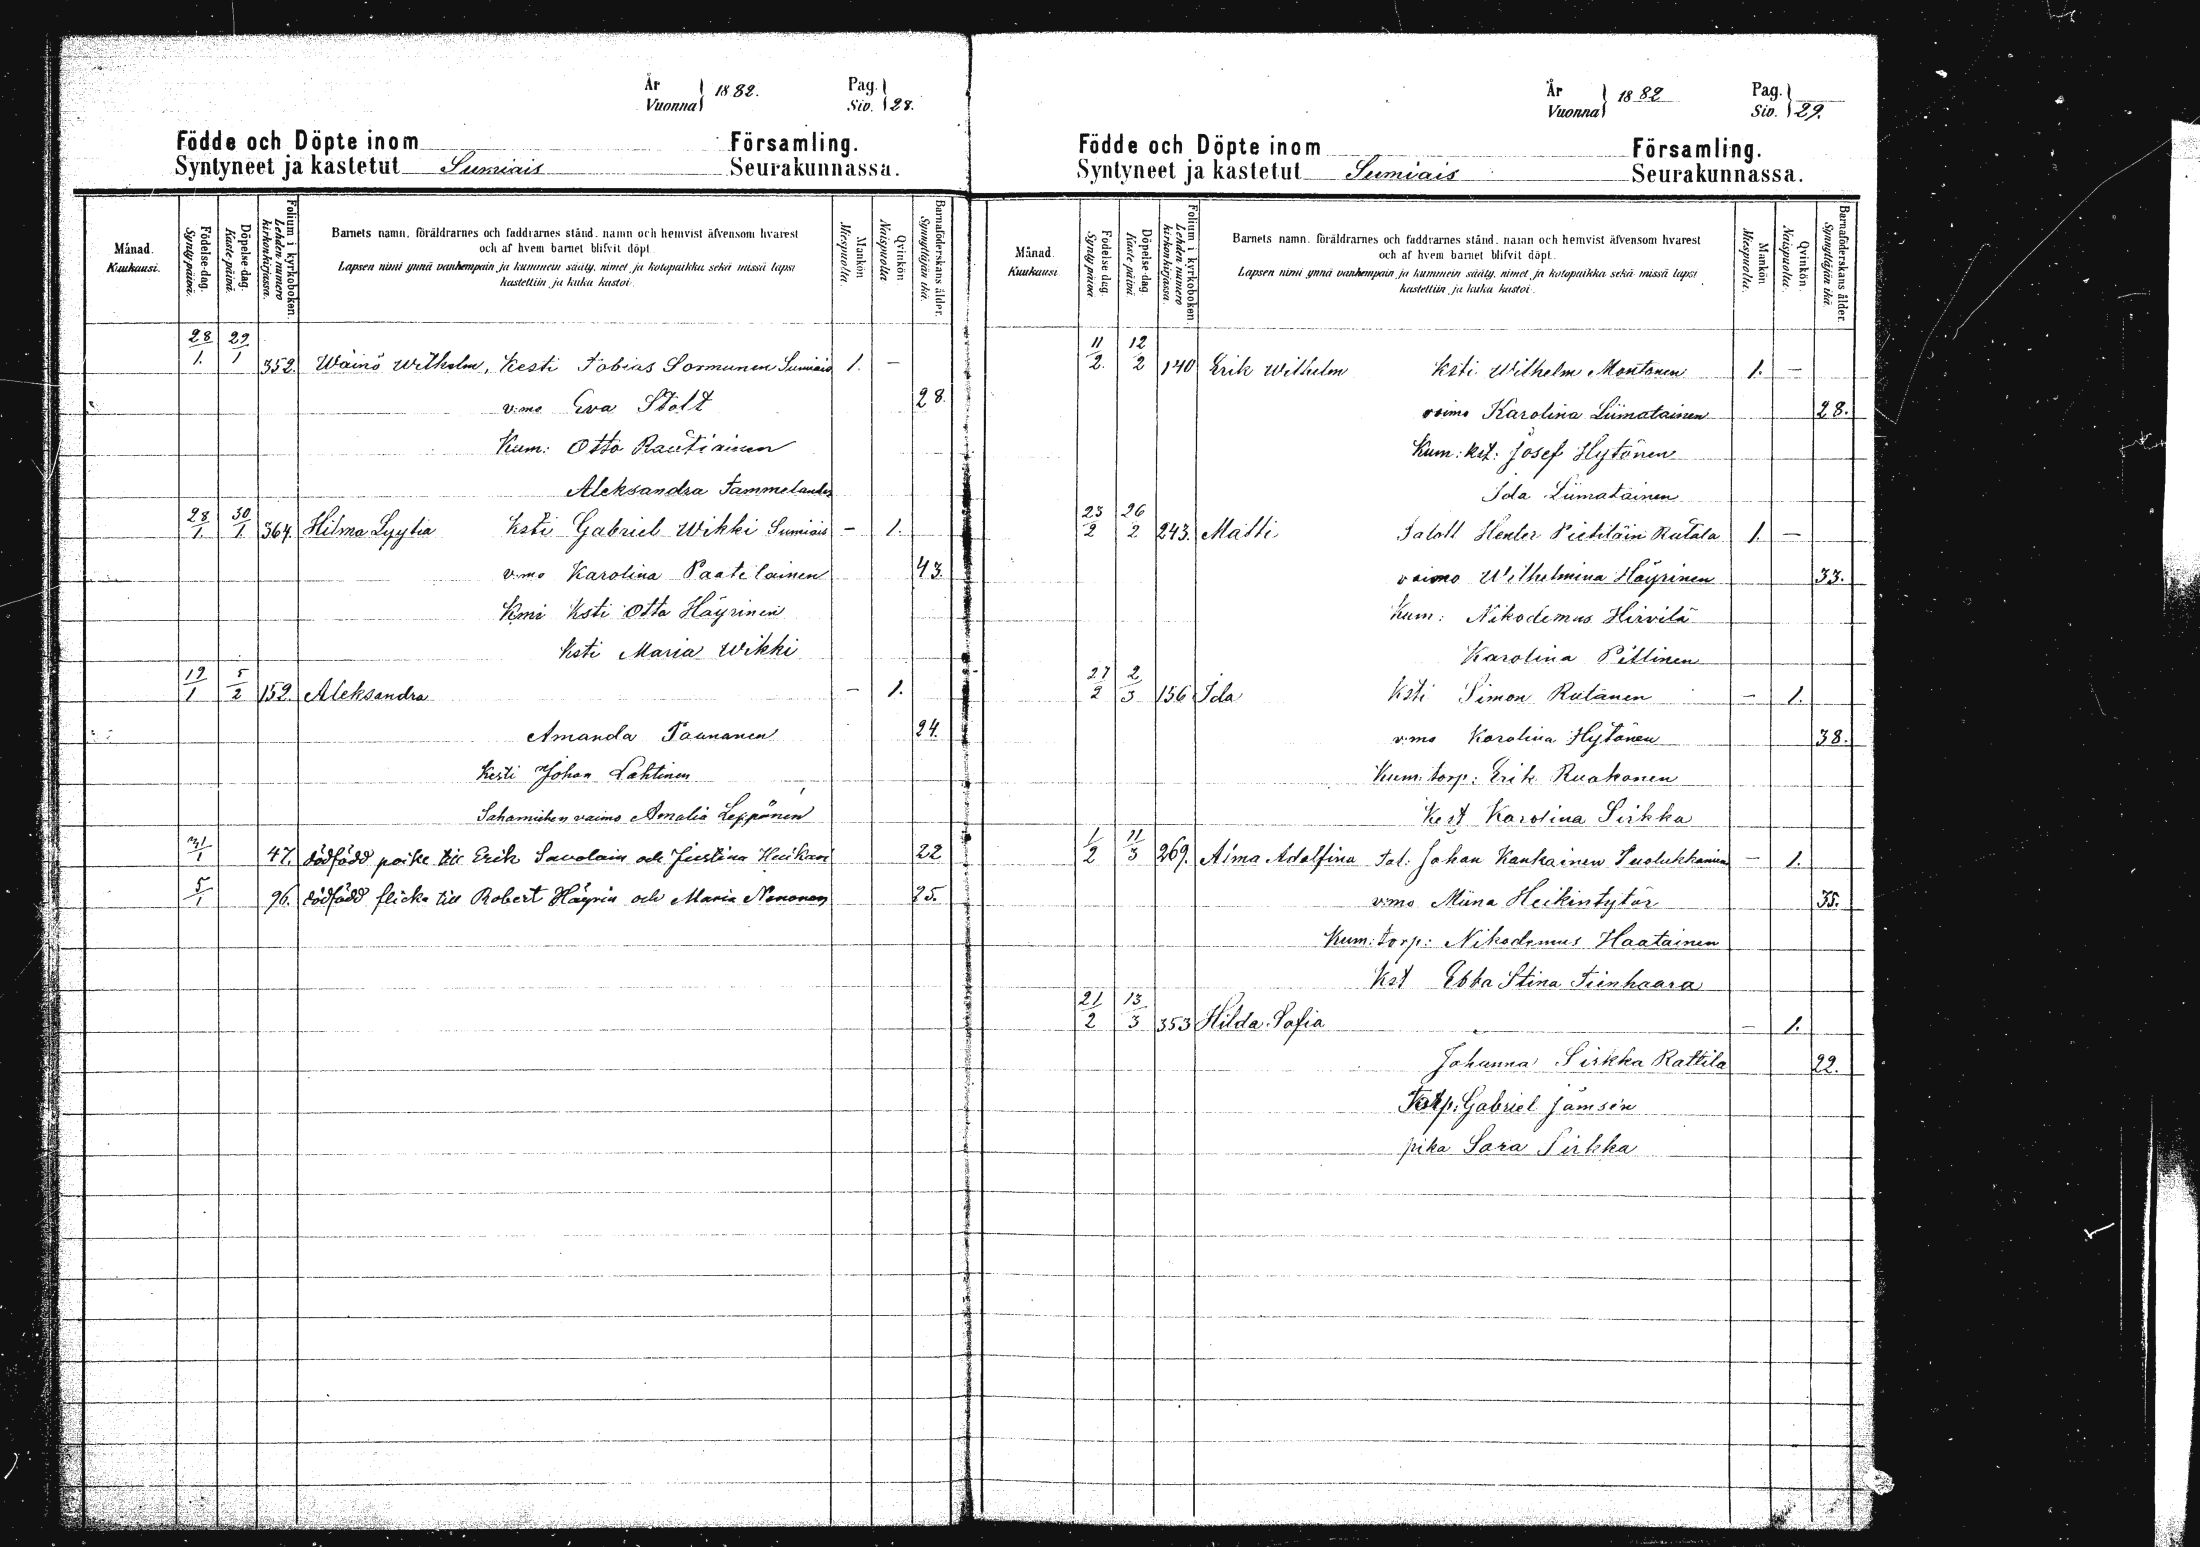 År
Vuonna 1882.
Pag.
Siv. 28.
Födde och Döpte inom Församling.
Syntyneet ja kastetut Sumiais Seurakunnassa.
Månad. Kuukausi.
Födelse-dag. Synty päivä.
Döpelse-dag. Kaste päivä.
Folium i kyrkoboken. Lehden numero kirkonkirjassa.
Barnets namn, föräldrarnes och faddrarnes stånd, namn och hemvist äfvensom hvarest
och af hvem barnet blifvit döpt.
Lapsen nimi ynnä vanhempain ja kummein sääty, nimet ja kotopaikka sekä missä lapsi
kastettiin ja kuka kastoi.
Mankön Miespuolia.
Qvinkön. Naispuolia
Barnaföderskans ålder. Synnyttäjän ikä.
28/1. 29/1 352. Wäinö Wilhelm, Kesti Tobias Sormunen Sumiais 1. –
v:mo Eva Stolt 28.
Kum: Otto Rautiainen
Aleksandra Tammelander
28/1. 30/1. 364. Hilma Lyytia Ksti Gabriel Wikki Sumiais – 1.
v:mo Karolina Paatelainen 43.
Kmi Ksti Otto Häyrinen
Ksti Maria Wikki
19/1 5/2 152. Aleksandra – 1.
Amanda Paananen 24.
Kesti Johan Lahtinen
Sahamiehen vaimo Amalia Leppänen
31/1 47. dödfödd poike till Erik Savolain och Justina 22
5/1 96. dödfödd flicka till Robert Häyrin och Maria Nenonen 25.
År
Vuonna 1882
Pag.
Siv. 29.
Födde och Döpte inom Församling.
Syntyneet ja kastetut Sumiais Seurakunnassa.
Månad. Kuukausi.
Födelse dag. Synty päivä
Döpelse-dag. Kaste päivä.
Folium i kyrkoboken. Lehden numero kirkonkirjassa.
Barnets namn, föräldrarnes och faddrarnes stånd, namn och hemvist äfvensom hvarest
och af hvem barnet blifvit döpt.
Lapsen nimi ynnä vanhempain ja kummein sääty, nimet ja kotopaikka sekä missä lapsi
kastettiin ja kuka kastoi.
Mankön Miespuolia.
Qvinkön. Naispuolia.
Barnaföderskans ålder. Synnyttäjän ikä.
11/2. 12/2 140 Erik Wilhelm Ksti Wilhelm Montonen 1. –
vaimo Karolina Liimatainen 28.
Kum: kst: Josef Hytönen
Ida Liimatainen
23/2 26/2 243. Matti Taloll Henler Pietiläin Rutala 1. –
vaimo Wilhelmina Häyrinen 33.
Kum: Nikodemus Hirvilä
Karolina Pitlinen
27/2 2/3 156 Ida Ksti Simon Rutanen – 1.
v:mo Karolina Hytönen 38.
Kum: torp: Erik Ruokonen
Kest Karolina Sirkka
1/2 11/3 269. Alma Adolfina Tal: Johan Kankainen – 1.
v:mo Miina Heikintytär 35.
Kum: torp: Nikodemus Haatainen
Kst Ebba Stina Tienhaara
21/2 13/3 353 Hilda Sofia – 1.
Johanna Sirkka Rattila 22.
Torp: Gabriel Jämsén
pika Sara Sirkka